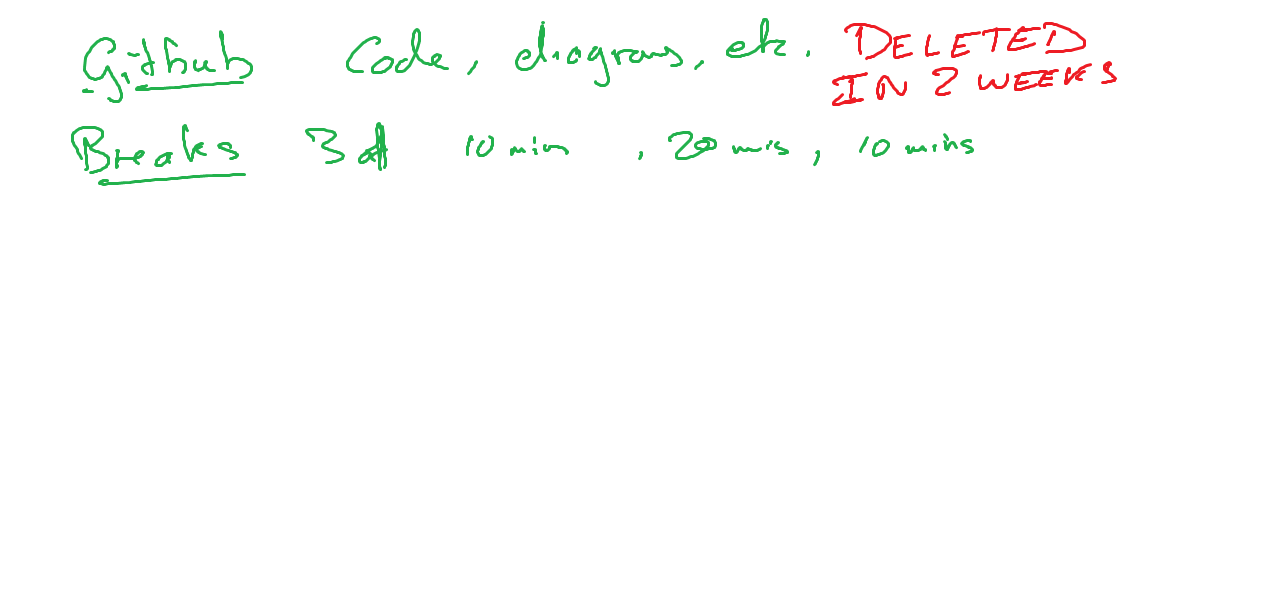 Github Code, diagrams, etc. DELETED
IN 2 WEEKS
Breaks 3 10 min , 20 mins, 10 mins